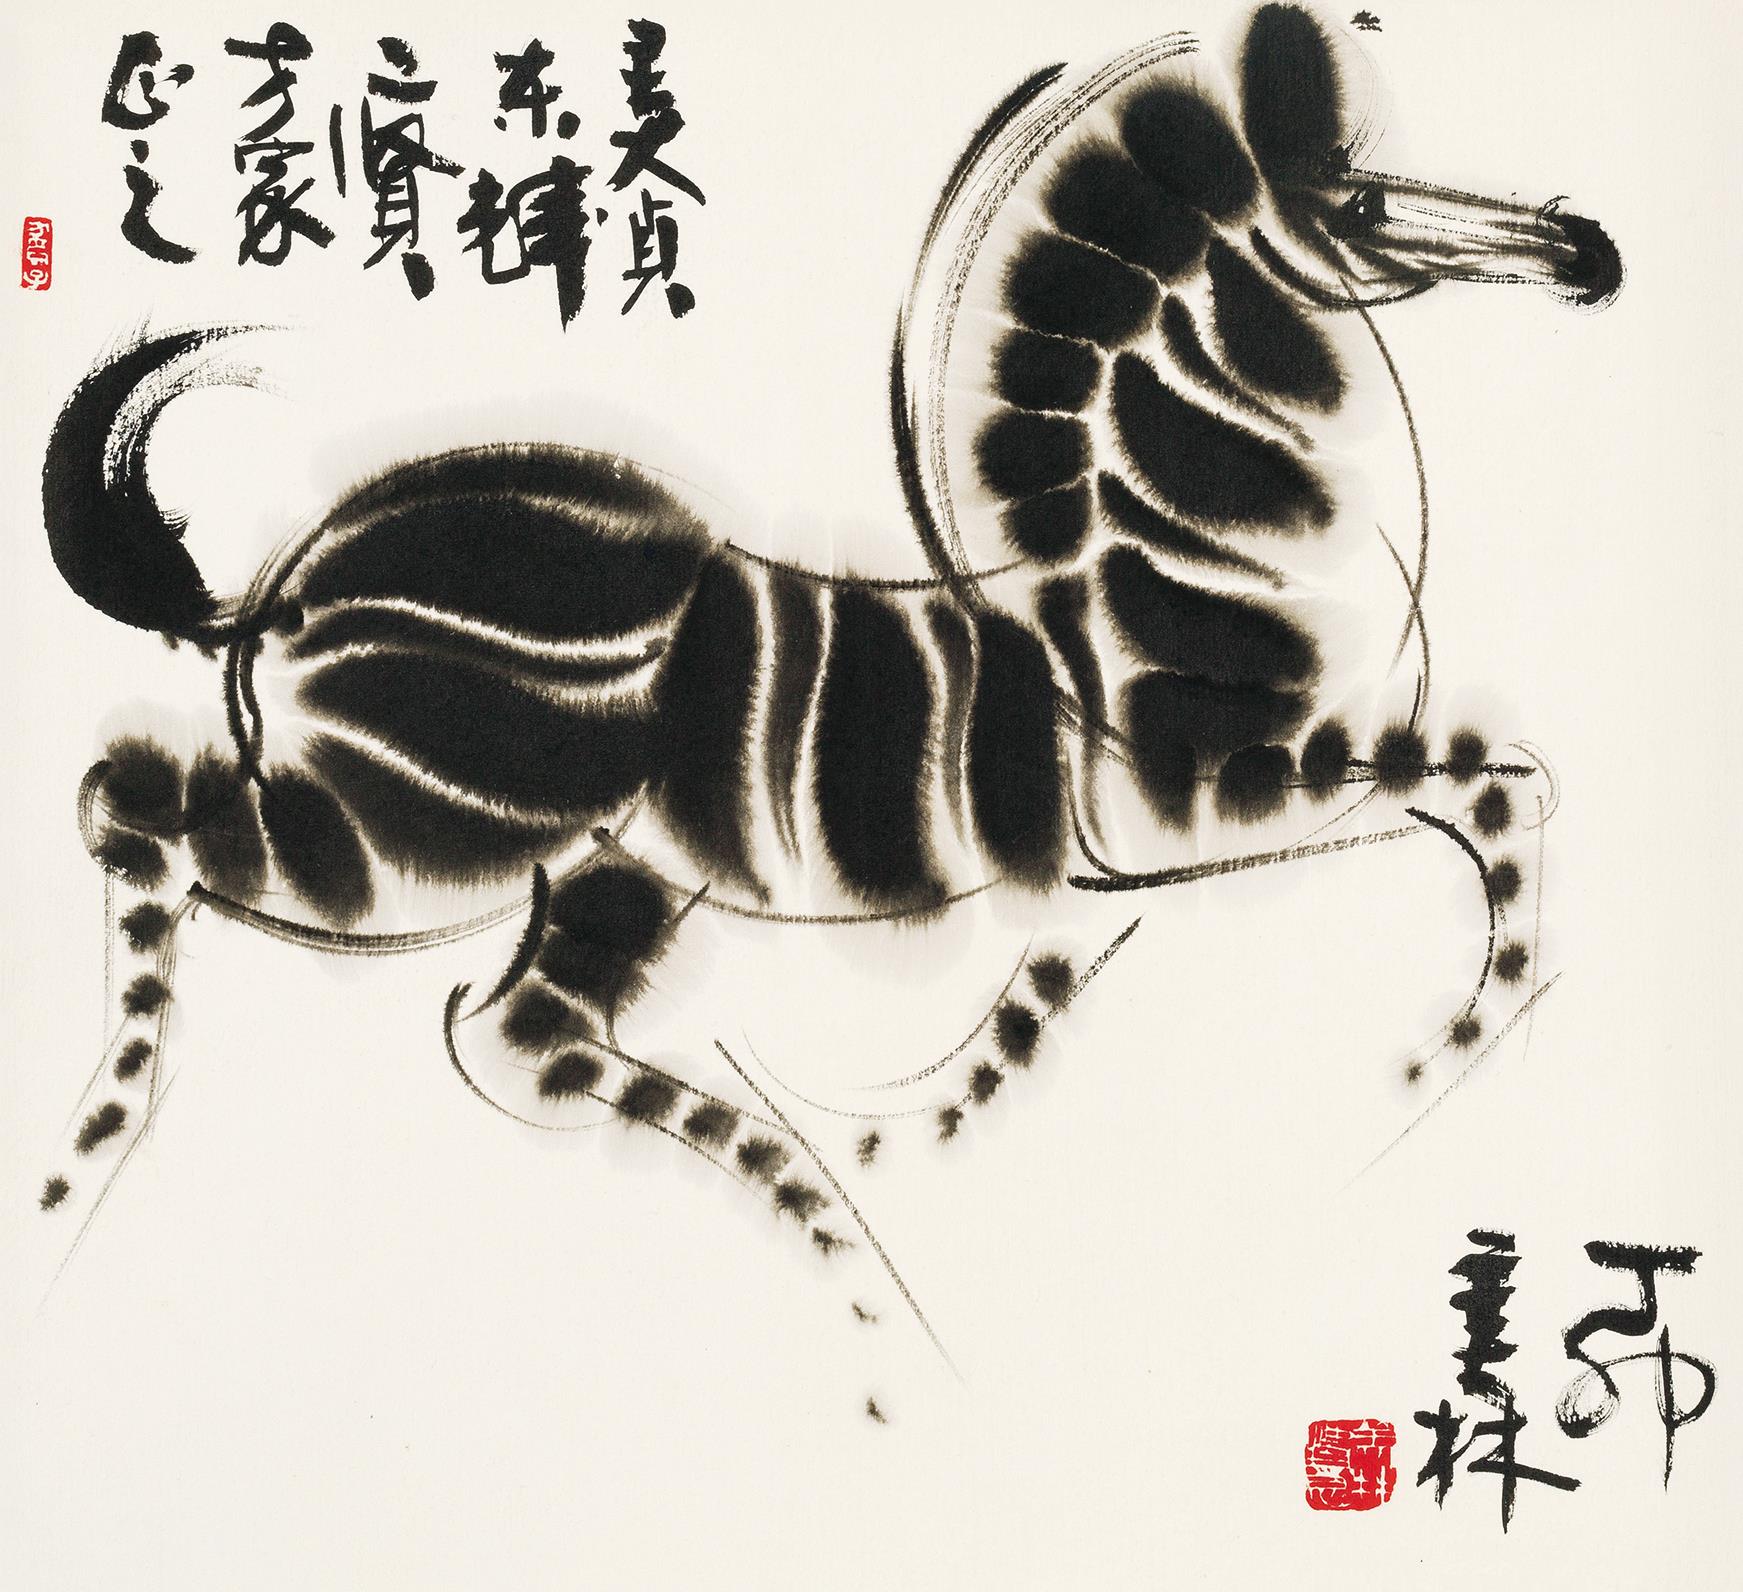 美貞
东辉
二贤
方家
正之
丁卯
美林